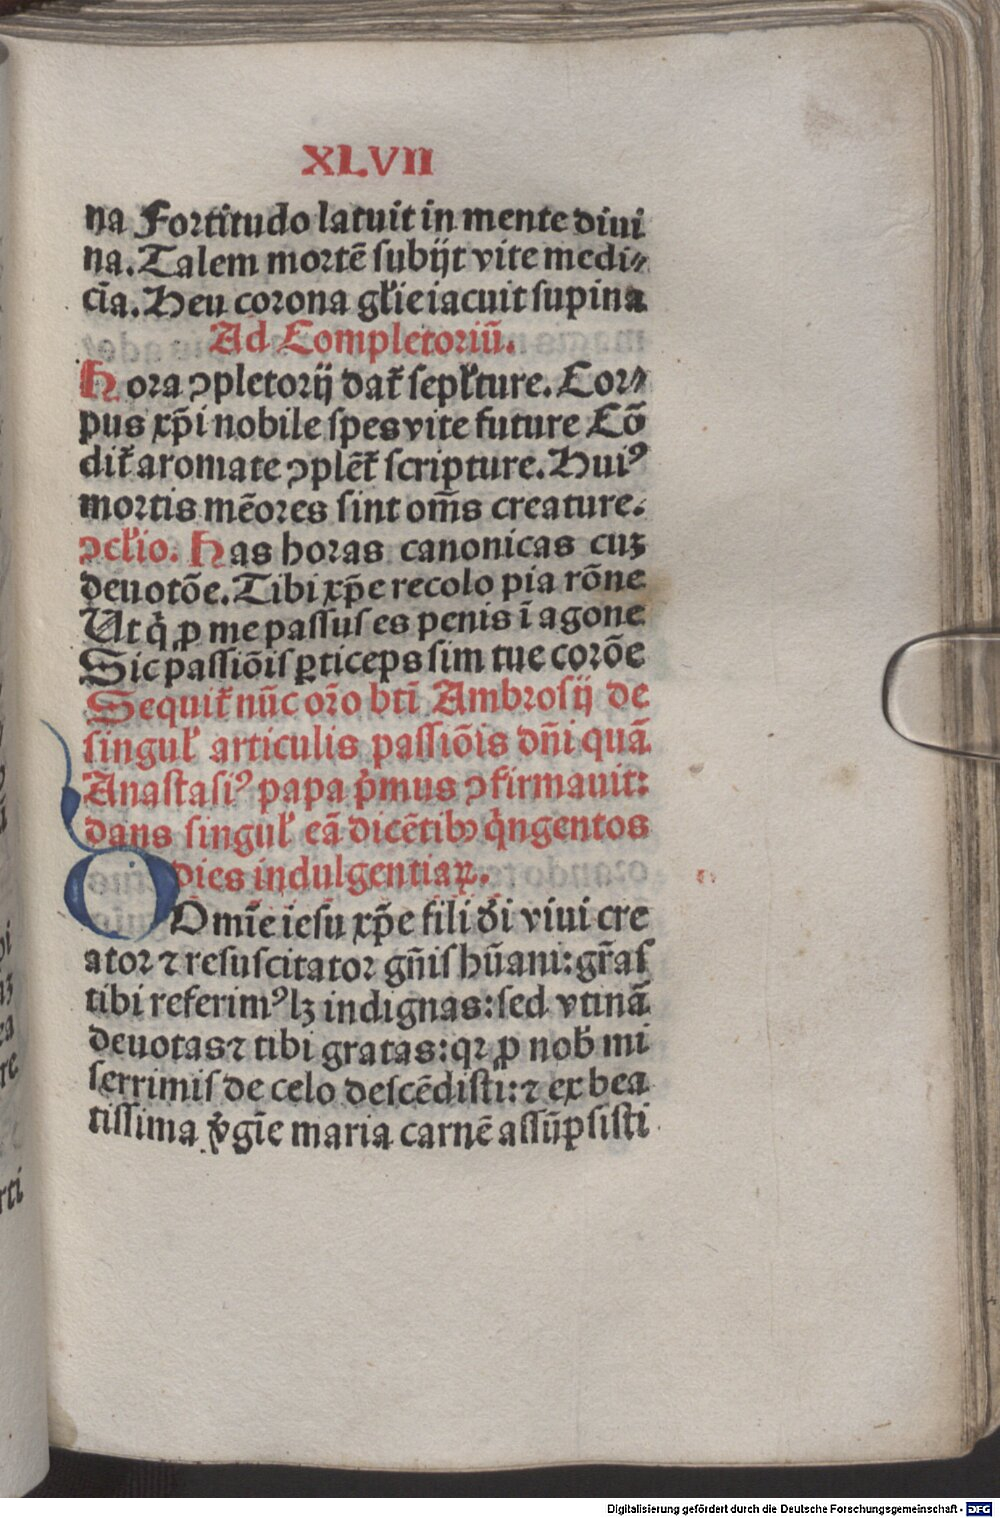 XLVII
na Fortitudo latuit in mente diui
na. Talem mortē subijt vite medi⸗
cīa. Heu corona gl̄ie iacuit supina
Ad Completoriū.
Hora ↄpletorij dat̄ sepl̄ture. Cor⸗
pus xp̄i nobile spes vite future Cō
dit̄ aromate ↄplēt̄ scripture. Huiꝰ
mortis mēores sint om̄s creature.
ↄcl̄io. Has horas canonicas cuꝫ
deuotōe. Tibi xp̄e recolo pia rōne
Ut q̇ ꝓ me passus es penis ī agone
Sic passiōis ꝑticeps sim tue corōe
Sequit̄ nūc or̄o bt̄i Ambrosij de
singul̄ articulis passiōis dn̄i quā
Anastasiꝰ papa pͥmus ↄfirmauit:
dans singul̄ eā dicētibꝰ qͥngentos
dies indulgentiaꝝ.
O Domīe iesu xp̄e fili d̄i viui cre
ator ⁊ resuscitator gn̄is hūani: gr̄as
tibi referimꝰ lꝫ indignas: sed vtinā
deuotas ⁊ tibi gratas: qꝛ ꝓ nob̄ mi
serrimis de celo descēdisti: ⁊ ex bea
tissima v̇gīe maria carnē assūpsisti
Digitalisierung gefördert durch die Deutsche Forschungsgemeinschaft - DFG